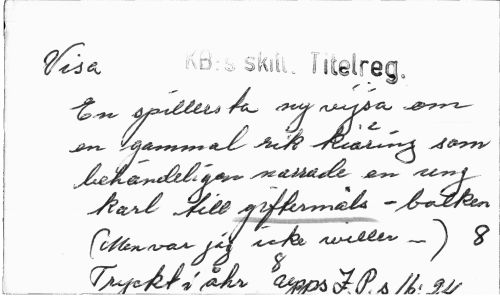 Visa KB:s skill. Titelreg.
En spillersta ny vijsa om
en gammal rik kiäring som
behändeligen narrade en ung
karl till giftermåls-balken
(Men var jag icke willer —) 8
Tryckt i åhr 8